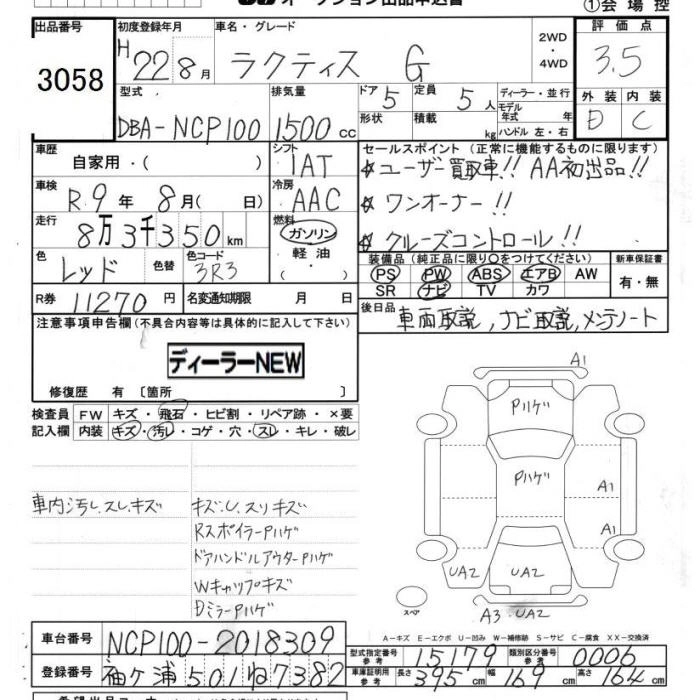 オークション出品申込書
①会場控
出品番号 初度登録年月 車名・グレード 評価点
3058 H22 8月 ラクティス G 2WD・4WD 3.5
型式 排気量 ドア 5 定員 5人 ディーラー・並行 外装 内装
DBA-NCP100 1500cc 形状 積載 kg モデル年式 年式 ハンドル 左・右 D C
車歴 シフト セールスポイント (正常に機能するものに限ります)
自家用・( ) IAT ☆ユーザー買取車!! AA初出品!!
車検 冷房
R.9年 8月( 日) AAC ☆ワンオーナー!!
走行 燃料
8万3千350km ガソリン ☆クルーズコントロール!!
軽油
・( )
色 色替 色コード 装備品 (純正品に限り○をつけてください) 新車保証書
レッド 3R3 PS PW ABS エアB AW 有・無
SR ナビ TV カワ
R券 11270円 名変通知期限 月 日 後日品 車両取説,ナビ取説,メンテノート
注意事項申告欄 (不具合内容等は具体的に記入して下さい)
ディーラーNEW
修復歴 有 〔箇所 〕
検査員 FW キズ・飛石・ヒビ割・リペア跡・×要
記入欄 内装 キズ・汚レ・コゲ・穴・スレ・キレ・破レ
A1
Pハゲ
Pハゲ
A1
A1
UA2 UA2
スペア A3 UA2
車内汚し.スレ.キズ キズ.U.スリキズ
Rスポイラー Pハゲ
ドアハンドルアウター Pハゲ
Wキャップキズ
Dミラー Pハゲ
A-キズ E-エクボ U-凹み W-補修跡 S-サビ C-腐食 XX-交換済
車台番号 NCP100-2018309 型式指定番号 参考 15179 類別区分番号 参考 0006
登録番号 袖ヶ浦 501 ね 7382 車庫証明用 参考 長さ 395cm 幅 169cm 高さ 164cm